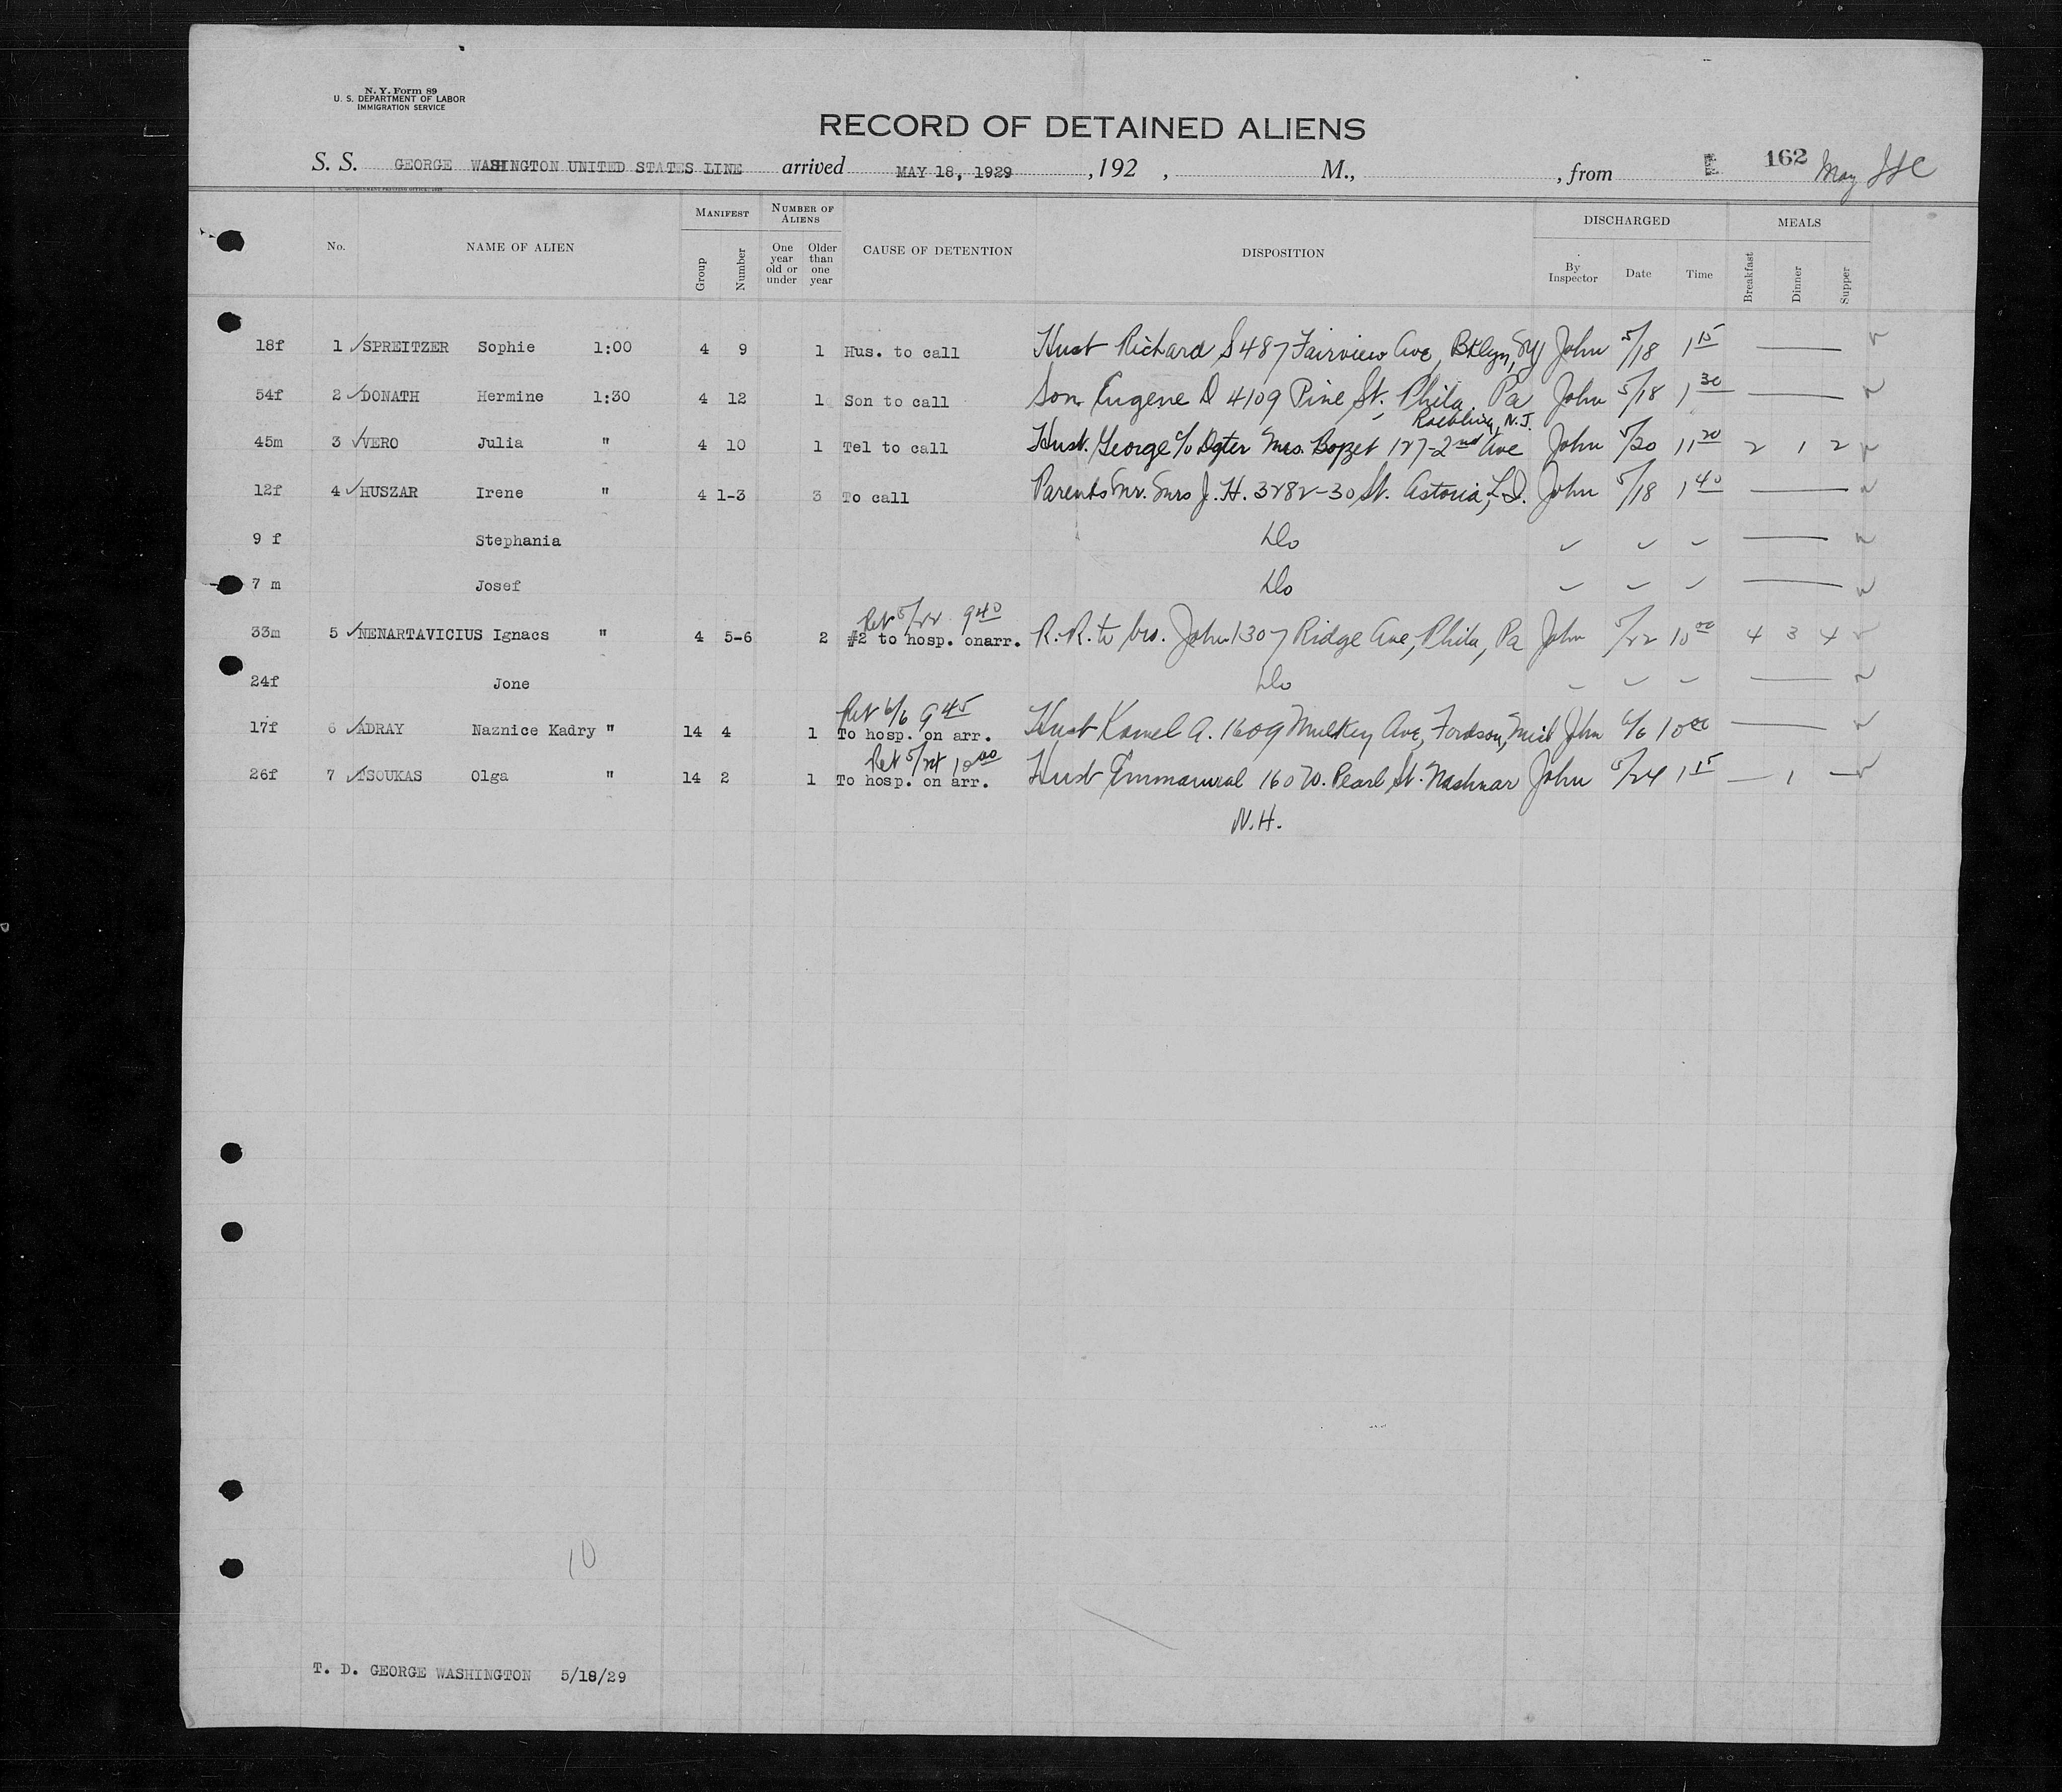 N. Y. Form 89
U. S. DEPARTMENT OF LABOR
IMMIGRATION SERVICE
RECORD OF DETAINED ALIENS
S. S. GEORGE WASHINGTON UNITED STATES LINE arrived MAY 18, 1929 , 192 , M., , from E 162 May
No. NAME OF ALIEN MANIFEST Group Number NUMBER OF ALIENS One year old or under Older than one year CAUSE OF DETENTION DISPOSITION DISCHARGED By Inspector Date Time MEALS Breakfast Dinner Supper
18f 1 ✓ SPREITZER Sophie 1:00 4 9 1 Hus. to call Husb Richard S 487 Fairview Ave, Bklyn, NY John 5/18 1 15 —
54f 2 ✓ DONATH Hermine 1:30 4 12 1 Son to call Son Eugene D 4109 Pine St., Phila. Pa John 5/18 1 30 —
Roebling, N.J.
45m 3 ✓ VERO Julia " 4 10 1 Tel to call Husb. George c/o Dgter Mrs. Bopzet 127-2nd Ave John 5/20 11 20 2 1 2
12f 4 ✓ HUSZAR Irene " 4 1-3 3 To call Parents Mr. Mrs J. H. 3282-30 St. Astoria, L.I. John 5/18 1 40 —
9 f Stephania Do ✓ ✓ ✓ —
7 m Josef Do ✓ ✓ ✓ —
Ret 5/22 9 40
33m 5 ✓ NENARTAVICIUS Ignacs " 4 5-6 2 #2 to hosp. onarr. R.R. to bro. John 1307 Ridge Ave, Phila, Pa John 5/22 10 00 4 3 4
24f Jone Do ✓ ✓ ✓ —
Ret 6/6 9 45
17f 6 ✓ ADRAY Naznice Kadry " 14 4 1 To hosp. on arr. Husb Kamel A. 1609 Mulkey Ave, Fordson, Mich John 6/6 10 00 —
Ret 5/24 10 00
26f 7 ✓ TSOUKAS Olga " 14 2 1 To hosp. on arr. Husb Emmanural 160 W. Pearl St. Nashuar John 5/24 1 15 — 1 —
N.H.
10
T. D. GEORGE WASHINGTON 5/18/29